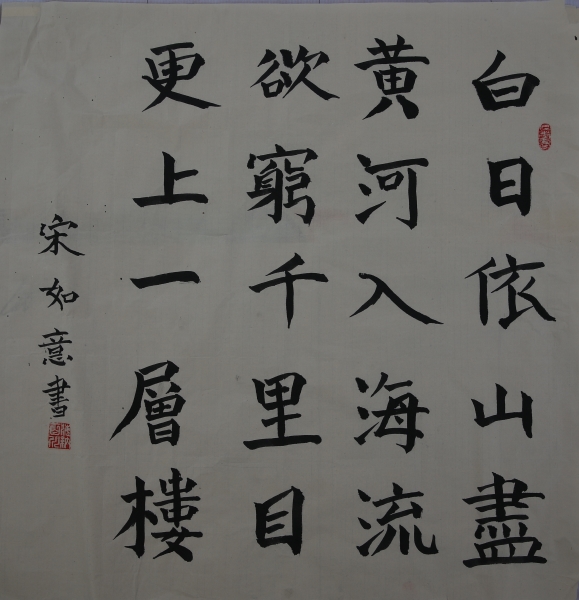 白日依山盡
黄河入海流
欲窮千里目
更上一層樓
宋如意書